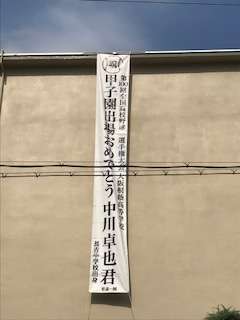 祝
第100回全国高校野球 選手権大会 大阪桐蔭高等学校
甲子園出場おめでとう 中川卓也君
長吉中学校出身